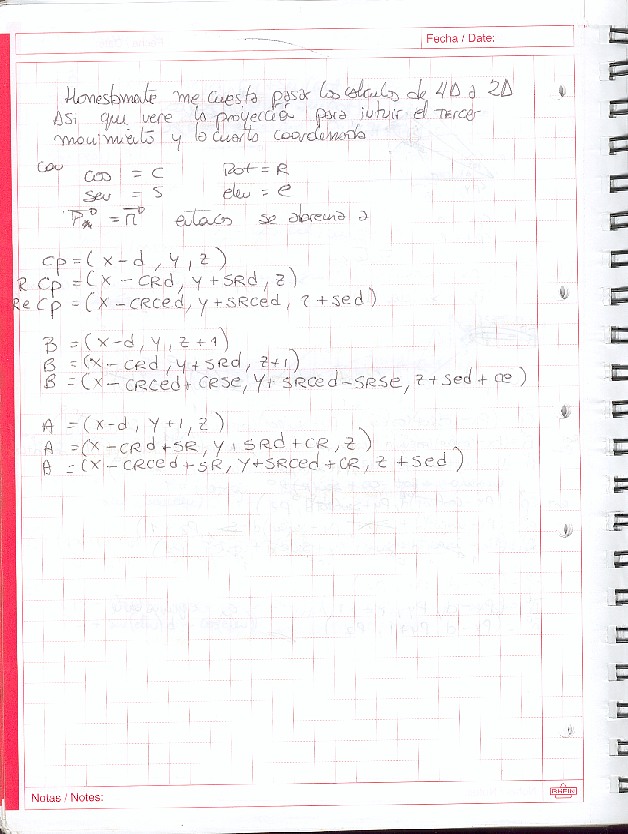 Fecha / Date:
Honestamente me cuesta pasar los cálculos de 4D a 2D
Asi que vere la proyección para intuir el TERCER
movimiento y la cuarta coordenada
con
cos = C Rot = R
sen = S elev = e
entonces se abrevia a
Cp = (x-d, y, z)
R Cp = (x - CRd, y + SRd, z)
Re Cp = (x - CRced, y + SRced, z + sed)
B = (x-d, y, z+1)
B = (x - CRd, y + SRd, z+1)
B = (x - CRced + CRSe, y + SRced - SRSe, z + sed + ce)
A = (x-d, y+1, z)
A = (x - CRd + SR, y + SRd + CR, z)
A = (x - CRced + SR, y + SRced + CR, z + sed)
Notas / Notes:
RHEIN